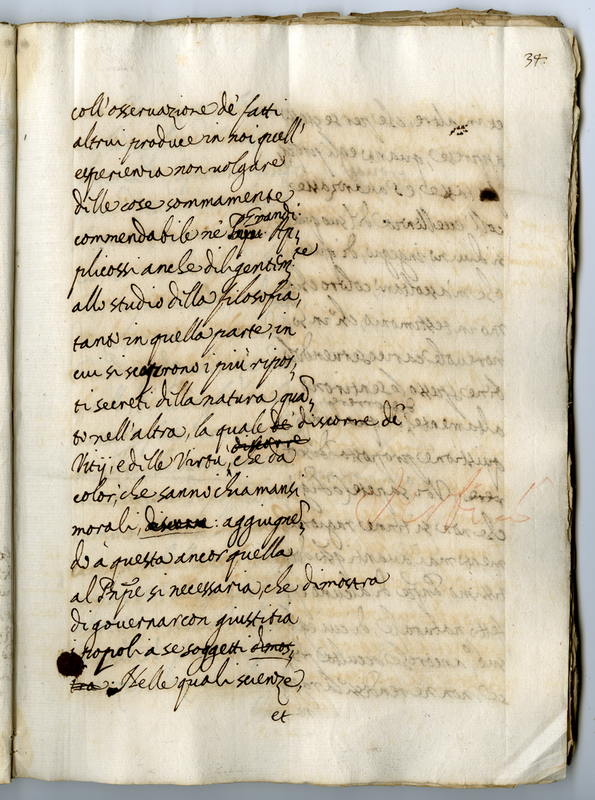 34.
coll'osseruazione de' fatti
altrui produce in noi quell'
esperienza non uolgare
delle cose sommamente
Grandi.
commendabile ne' Ap,
plicossi anche diligentim.te
allo studio della filosofia,
tanto in quella parte, in
cui si scoprono i più ripos,
ti secreti della natura quā,
to nell'altra, la quale de' discorre de'
discorre
Vitij, e delle Virtù, che da
color, che sanno chiamansi
morali, discorre: aggiugnē,
do à questa ancor quella
al Pnpe si necessaria, che dimostra
di gouernar con giustitia
i popoli a se soggetti dimos,
tra: Nelle quali scienze,
et